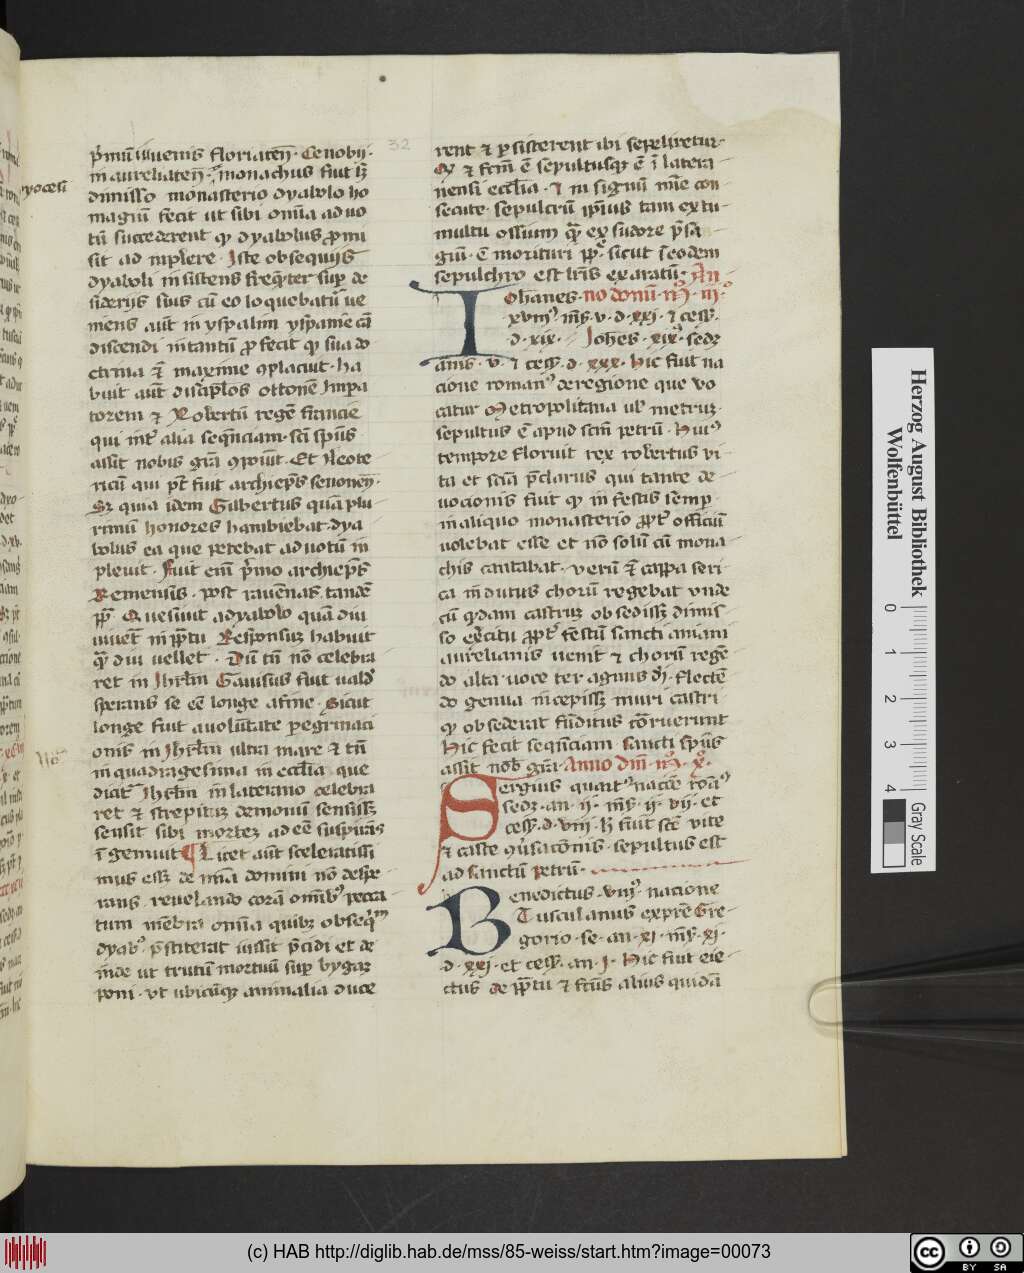 p̄mū iuuenis floriaceñ. Cenobij.
in aurelianeñ. dyocesi monachus fuit s
dimisso monasterio dyabolo ho
magiū fecit ut sibi omīa ad uo
tū succederent qͥ dyabolus ꝓmi
sit ad implere. Iste obsequijs
dyaboli insistens freq̄ter suꝑ de
siderijs suis cū eo loquebatͥ ue
niens aūt in yspalim yspanie cā
discendi intantū ꝓfecit qͥ sua do
ctrina ī maxime ꝯplacuit. ha
buit aūt discip̄los ottonē Impa
torem ⁊ Robertū regē francie
qui int̄ alia seq̄nciam. sc̄i sp̄us
assit nobis gr̄a ꝯposuit. Et
ricū qui p̄t fuit archiep̄s senoneñ.
Sꝫ quia idem Gilbertus quā plu
rimū honores hambiebat. dya
bolus ea que petebat ad uotū in
pleuit. Fuit em̄ p̄mo archiep̄s
Remensis. post rauēnas. tandē
pp̄. Quesiuit a dyabolo quā diu
uiuet in pp̄tu Responsuꝫ habuit
q̄ diu uellet. Dū tn̄ nō celebra
ret in Ihrl̄m Gauisus fuit uald̄
sperans se eē longe a fine. Sicut
longe fuit a uolūtate peregrinaci
onis in Ihrl̄m ultra mare ⁊ cū
in quadragesima in eccl̄ia que
dicit̄ Ihrl̄m in laterano celebra
ret ⁊ strepituꝫ demonū sensissꝫ
sensit sibi morteꝫ adeē suspirās
īgemuit Licet aūt sceleratissi
mus essꝫ de mīa domini nō despe
rans. reuelando corā omībꝫ pecca
tum mēbra omīa quibꝫ obseq̄m
dyabͦ. p̄stiterat iussit p̄cidi et de
inde ut trūcū mortuū suꝑ bygaꝫ
poni. vt ubicūqꝫ animalia duce
32
rent ⁊ ꝑsisterent ibi sepeliretur.
Qͥ ⁊ fcm̄ ē sepultusqꝫ ē ī latera
nensi eccl̄ia. ⁊ in signū mīe con
secute. sepulcrū ip̄ius tam ex tu
multu ossium quā ex sudore p̄sa
giū. ē morituri pp̄. sicut ī eodem
sepulchro est lr̄is exaratū. An
Iohanes. no domī Mͦ. iiiͦ.
xviiͥ. m̄s. v. d. xxi. ⁊ cess̄.
d. xix. Johēs. xixͥ. sedꝫ
anīs. v. ⁊ cess̄. d. xxx. Hic fuit na
cione romanꝰ de regione que vo
catur Metropolitana ul̓ metruꝫ.
sepultus ē apud scm̄ petrū. Huiꝰ
tempore floruit rex robertus vi
ta et sciā p̄clarus qui tante de
uocionis fuit qͥ in festis semꝑ
in aliquo monasterio ꝓpt̄ officiū
uolebat esse et nō solū cū mona
chis cantabat. verū ⁊ cappa seri
ca indutus chorū regebat vnde
cū q̄dam castruꝫ obsedissꝫ dimis
so ex̄citu ꝓpt̄ festū sancti aniani
aurelianis uenit ⁊ chorū regē
do alta uoce ter agnus d̄i. flectē
do genua incepissꝫ muri castri
qͥ obsederat fūditus corruerunt
Hic fecit seqn̄ciam sancti sp̄us
assit nob̄ gr̄a. Anno dn̄i. Mͦ. xͦ.
Sergius quartꝰ nacōe roāꝰ
sedꝫ. an. ij. m̄s. ij. vij. et
cess̄. d. viij. h̄ fuit scē vite
⁊ caste ꝯuersacōnis. sepultus est
ad sanctū petrū.
Benedictus. viijͥ. nacione
Tusculanus ex pr̄e Gre-
gorio. se. an. xi. m̄s. xi.
d. xxj. et cess̄. an. j. Hic fuit eie
ctus de pp̄tu ⁊ fcūs alius quidā
Herzog August Bibliothek
Wolfenbüttel
0 1 2 3 4
Gray Scale
(c) HAB http://diglib.hab.de/mss/85-weiss/start.htm?image=00073
cc BY SA